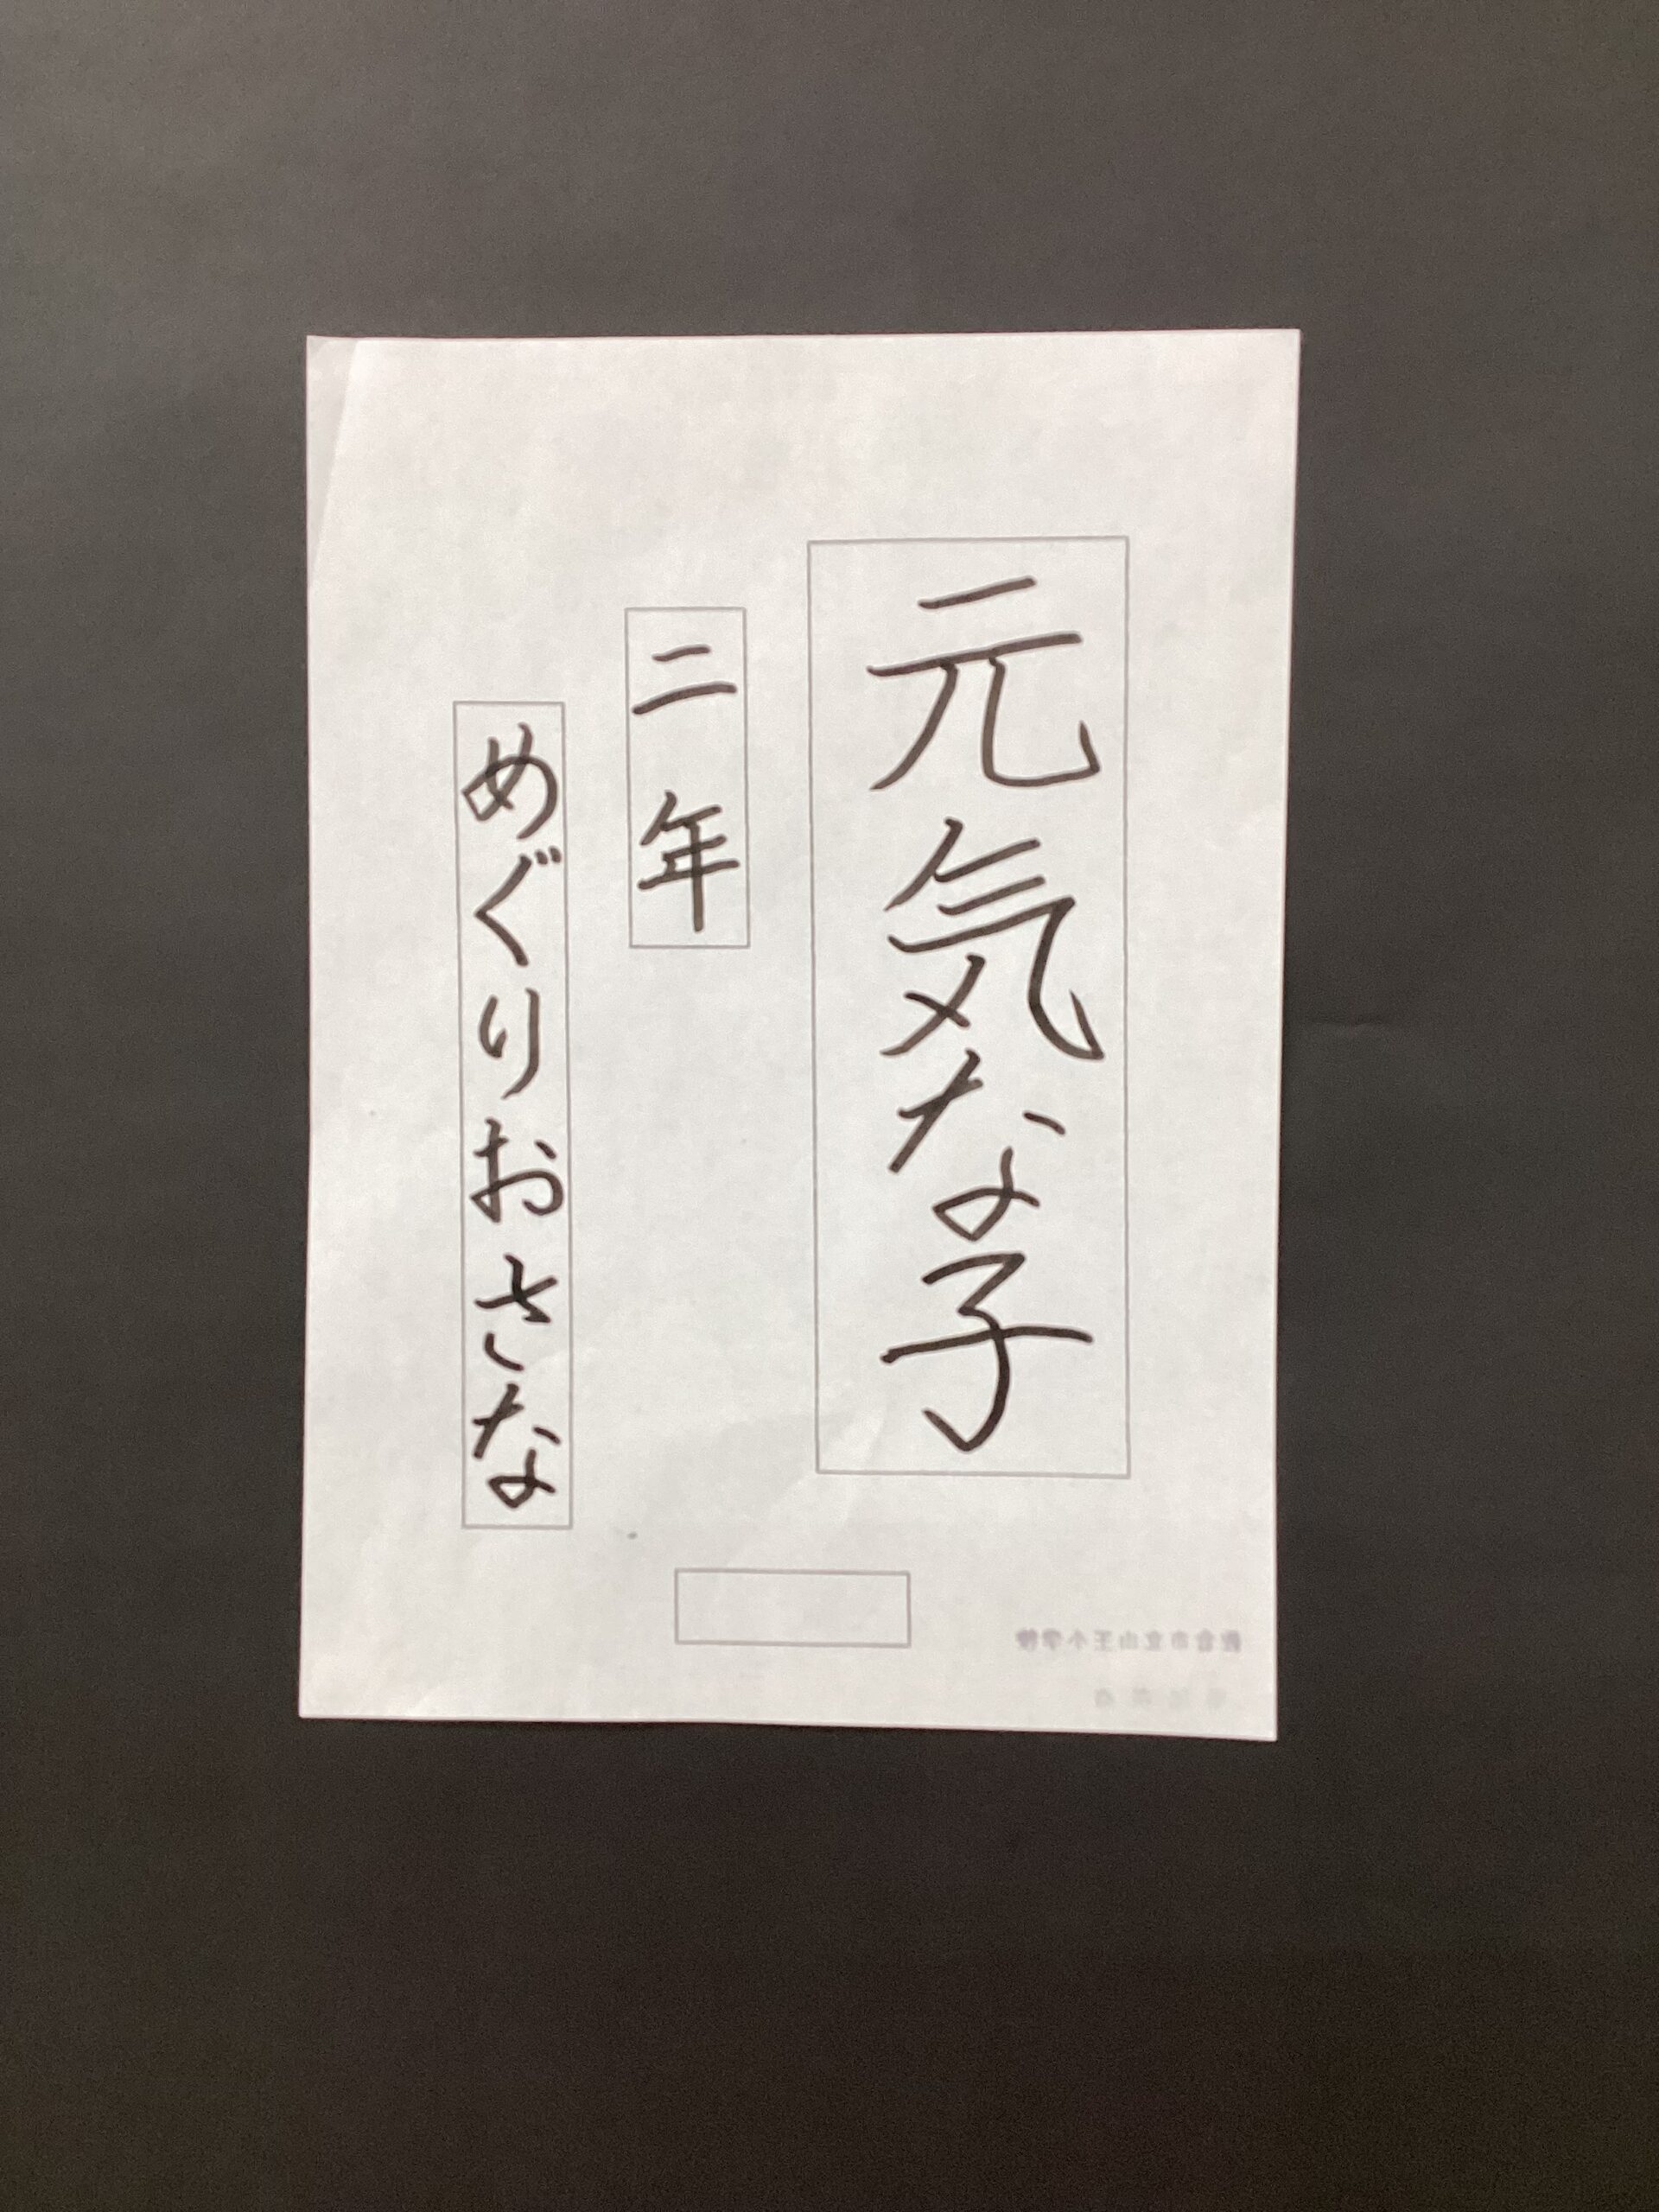 元気な子
二年
めぐりおさな